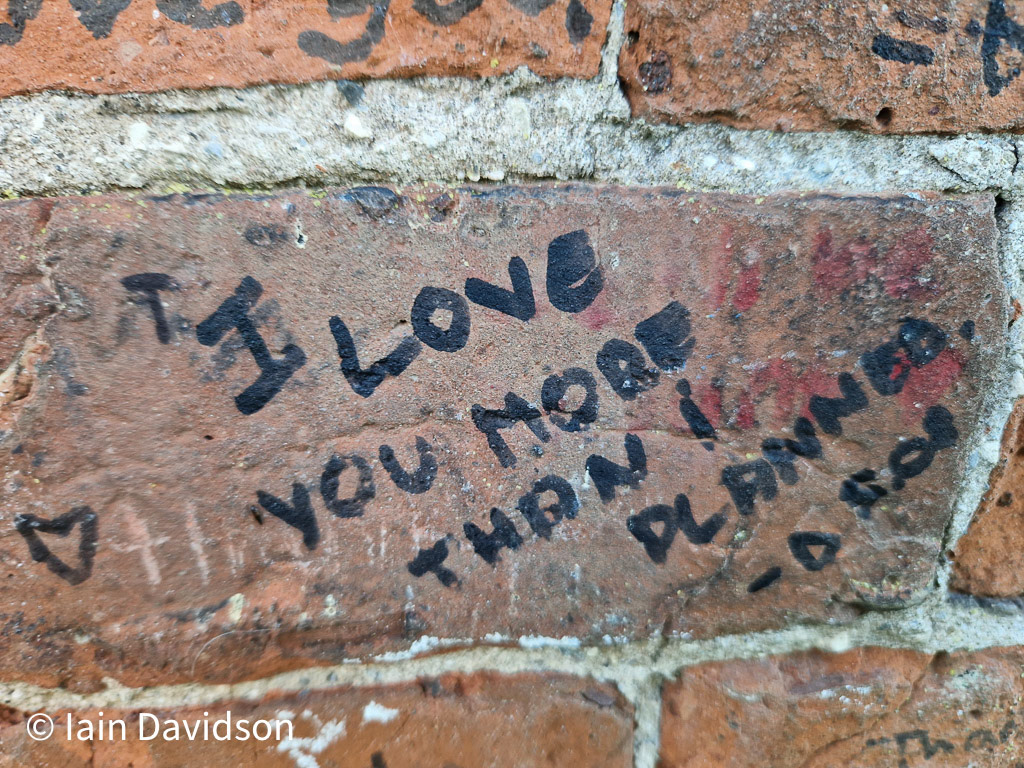 I LOVE
YOU MORE
THAN i
PLANNED.
© Iain Davidson